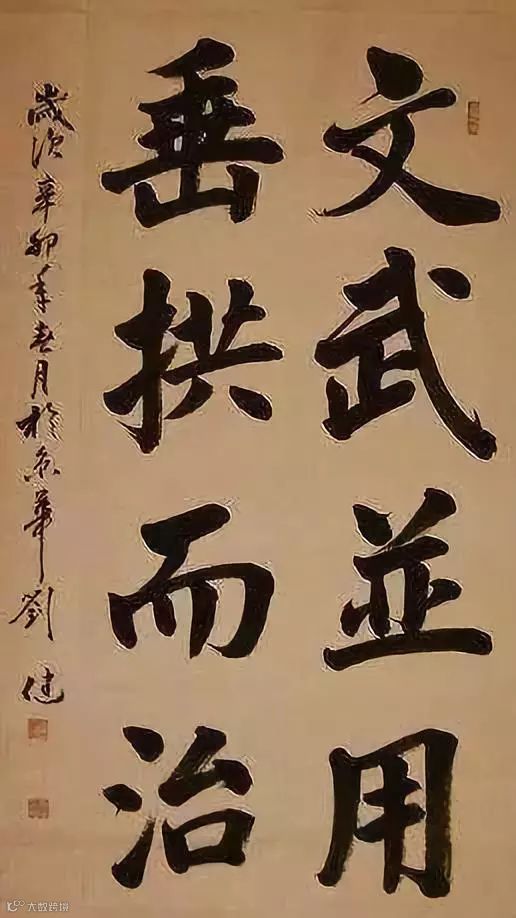 文武並用
垂拱而治
歲次辛卯年春月於京華劉健
大数跨境